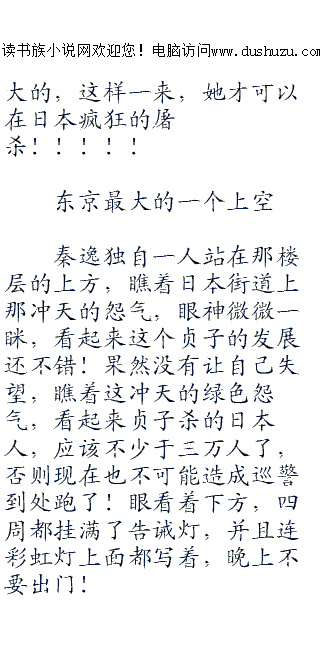 读书族小说网欢迎您！电脑访问www.dushuzu.com
大的，这样一来，她才可以
在日本疯狂的屠
杀！！！！！
东京最大的一个上空
秦逸独自一人站在那楼
层的上方，瞧着日本街道上
那冲天的怨气，眼神微微一
眯，看起来这个贞子的发展
还不错！果然没有让自己失
望，瞧着这冲天的绿色怨
气，看起来贞子杀的日本
人，应该不少于三万人了，
否则现在也不可能造成巡警
到处跑了！眼看着下方，四
周都挂满了告诫灯，并且连
彩虹灯上面都写着，晚上不
要出门！